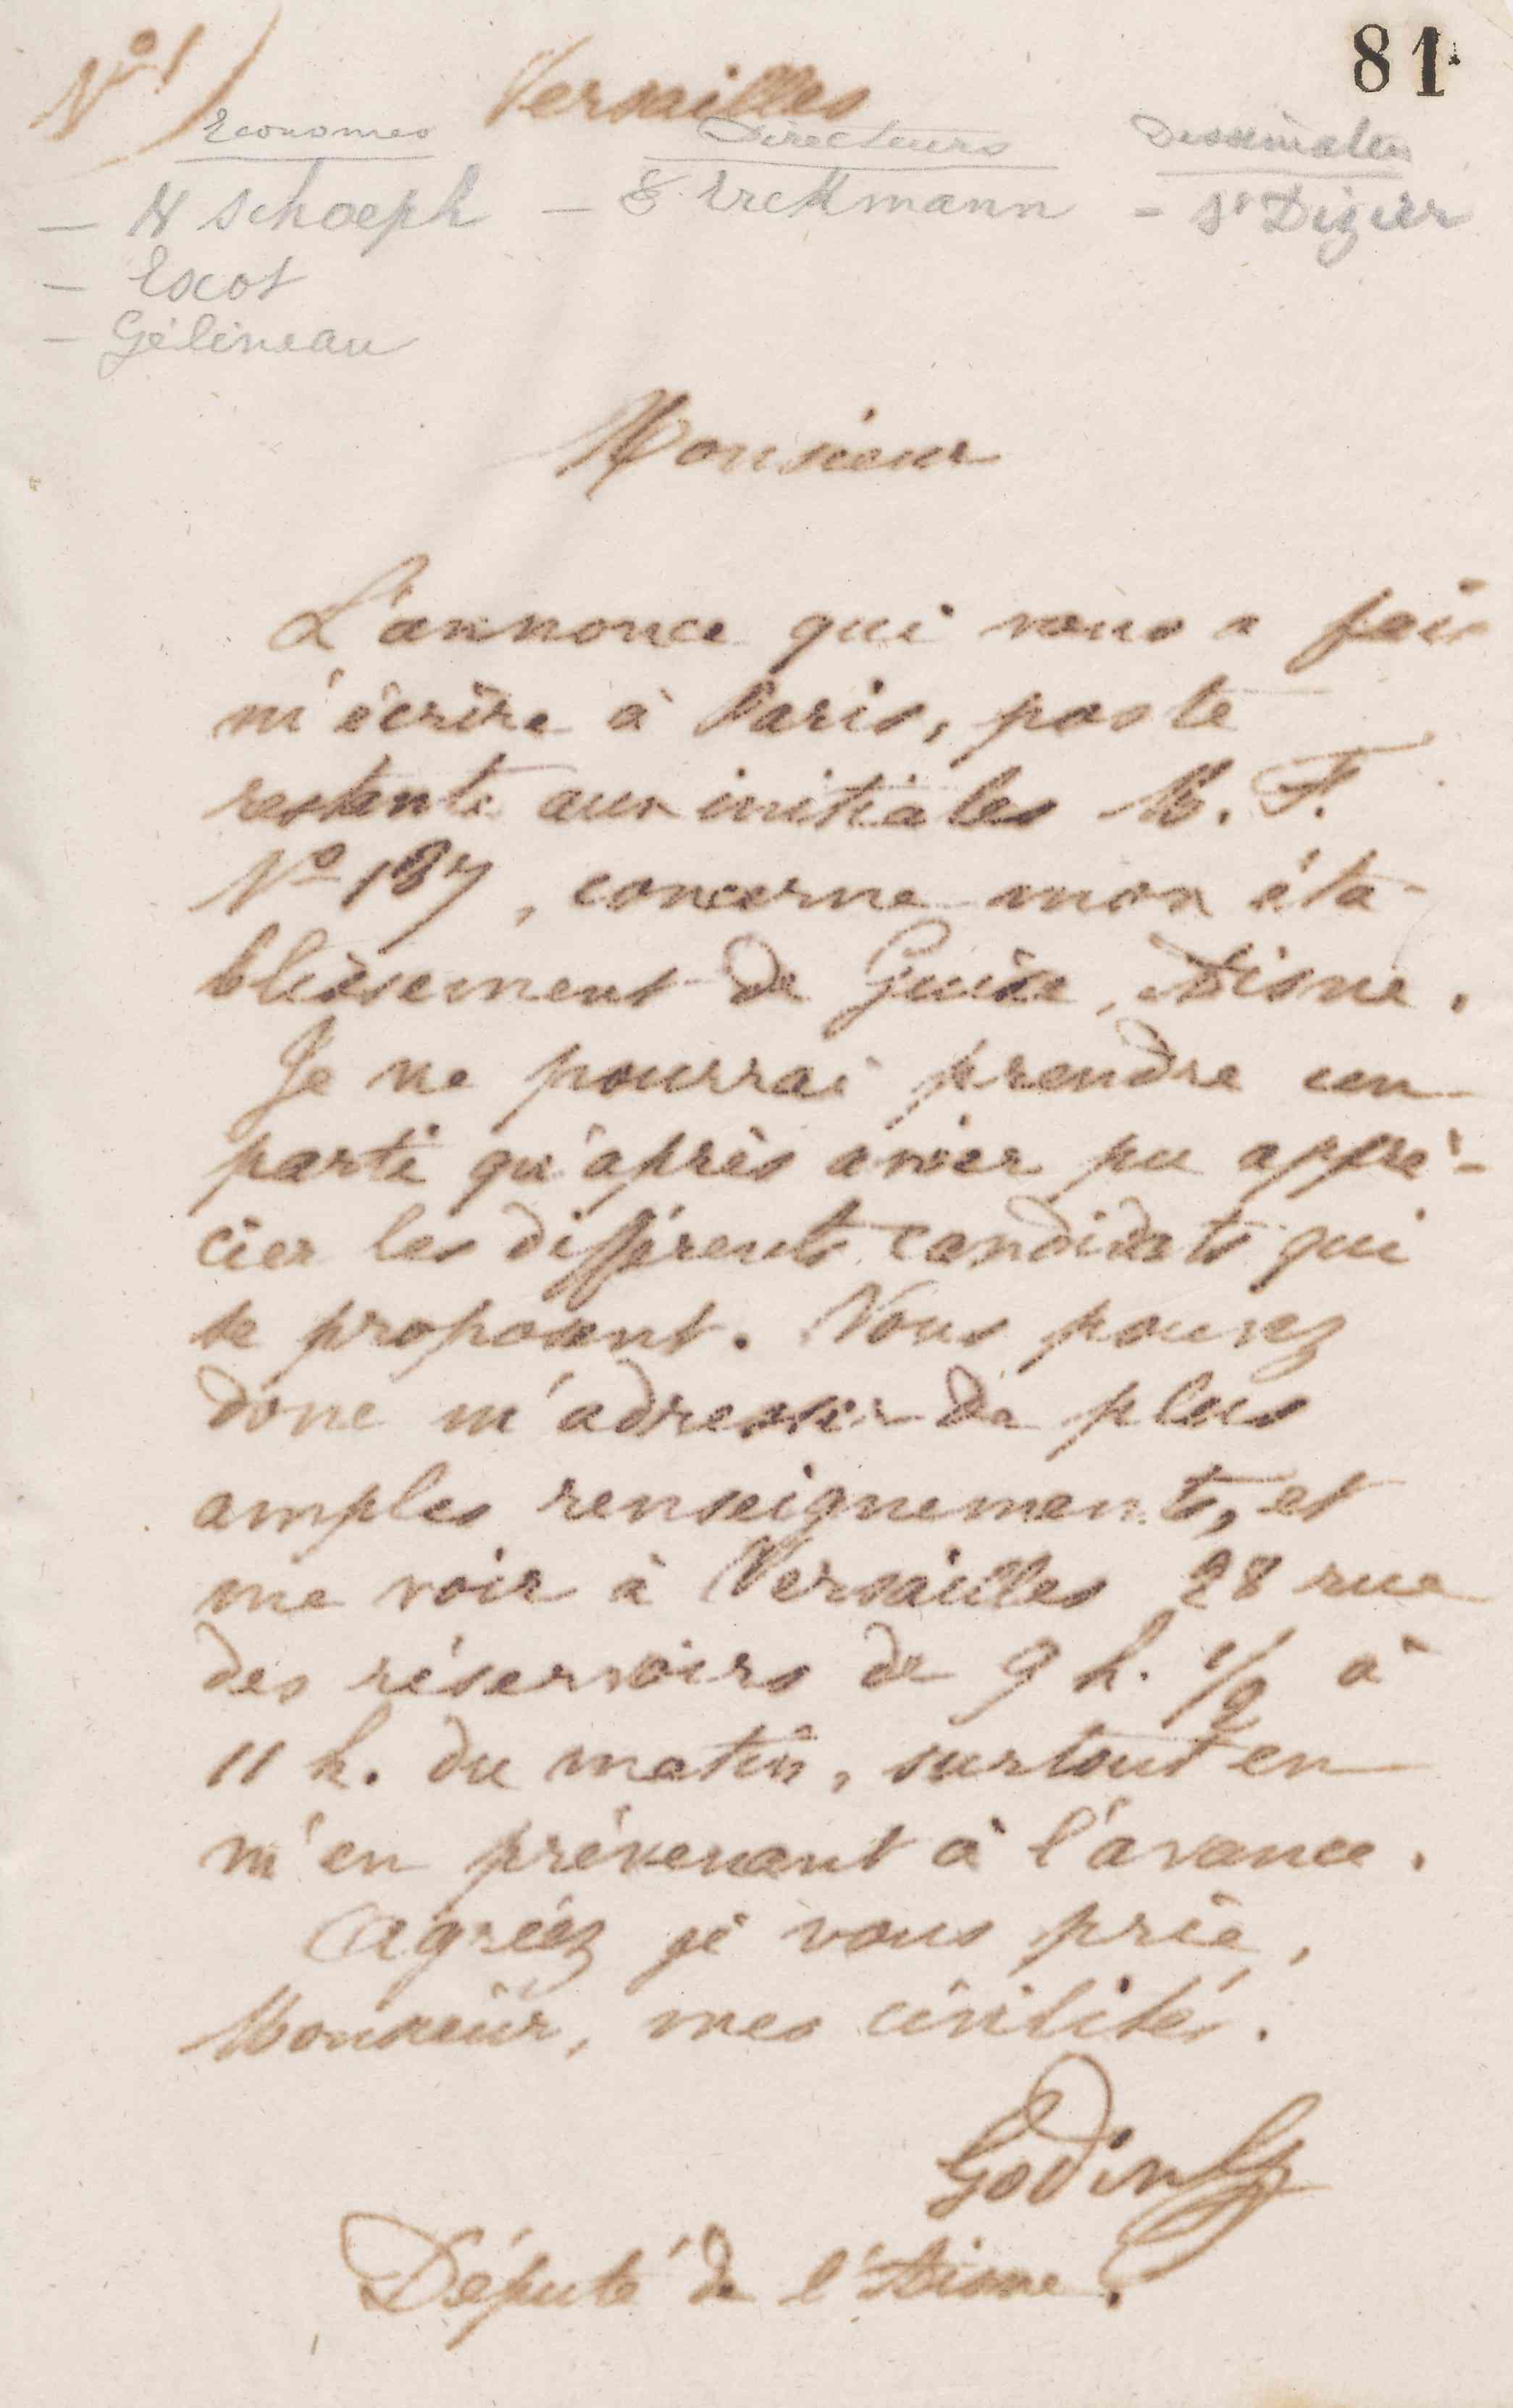 81
N° 1) Versailles
Economes Directeurs Dessinateur
— N Schoeph — E. Erckmann - St Dizier
— Escot
— Gélineau
Monsieur
L'annonce qui vous a fait
m'écrire à Paris, poste
restante aux initiales M. F.
N° 187, concerne mon éta-
blissement de Guise, Aisne.
Je ne pourrai prendre un
parti qu'après avoir pu appré-
cier les différents candidats qui
se proposent. Vous pouvez
donc m'adresser de plus
amples renseignements, et
me voir à Versailles 28 rue
des réservoirs de 9 h. 1/2 à
11 h. du matin, surtout en
m'en prévenant à l'avance.
Agréez je vous prie,
Monsieur, mes civilités.
Godin
Député de l'Aisne.